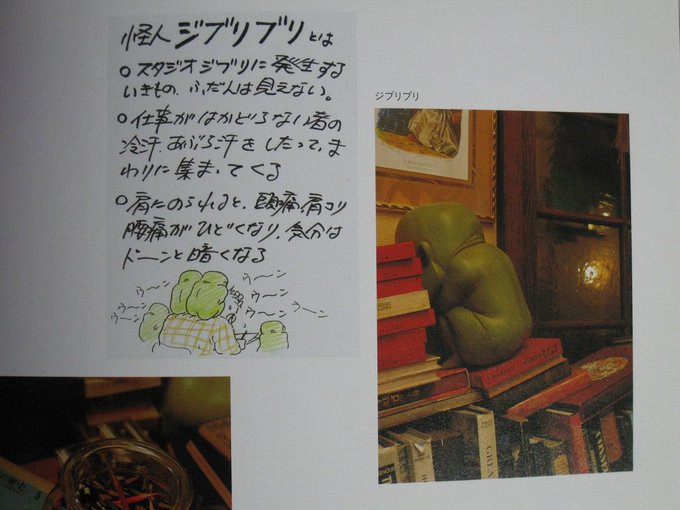 怪人ジブリブリとは
○スタジオジブリに発生する
いきもの、ふだんは見えない。
○仕事がはかどらない者の
冷汗、あぶら汗をしたって、ま
わりに集まってくる
○肩にのられると、頭痛、肩コリ
腰痛がひどくなり、気分は
ドーンと暗くなる
ウ〜ン
ウ〜ン
ウ〜ン
ウ〜ン
ウ〜ン
ウ〜ン
ジブリブリ
5